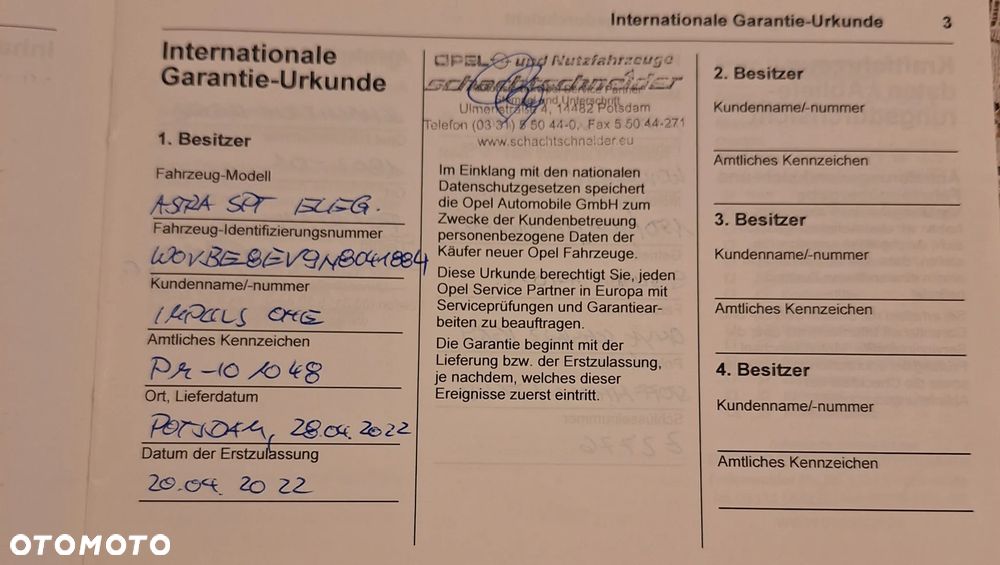 Internationale Garantie-Urkunde 3
Internationale
Garantie-Urkunde
1. Besitzer
Fahrzeug-Modell
ASTRA SPT ELEG.
Fahrzeug-Identifizierungsnummer
W0VBE8EV9N8041884
Kundenname/-nummer
IMPULS ONE
Amtliches Kennzeichen
PM-10 1048
Ort, Lieferdatum
POTSDAM, 28.04.2022
Datum der Erstzulassung
20.04.2022
OPEL und Nutzfahrzeuge
schachtschneider
Ulmenstraße 4, 14482 Potsdam
Telefon (03 31) 5 50 44-0, Fax 5 50 44-271
www.schachtschneider.eu
Im Einklang mit den nationalen
Datenschutzgesetzen speichert
die Opel Automobile GmbH zum
Zwecke der Kundenbetreuung
personenbezogene Daten der
Käufer neuer Opel Fahrzeuge.
Diese Urkunde berechtigt Sie, jeden
Opel Service Partner in Europa mit
Serviceprüfungen und Garantiear-
beiten zu beauftragen.
Die Garantie beginnt mit der
Lieferung bzw. der Erstzulassung,
je nachdem, welches dieser
Ereignisse zuerst eintritt.
2. Besitzer
Kundenname/-nummer
Amtliches Kennzeichen
3. Besitzer
Kundenname/-nummer
Amtliches Kennzeichen
4. Besitzer
Kundenname/-nummer
Amtliches Kennzeichen
OTOMOTO